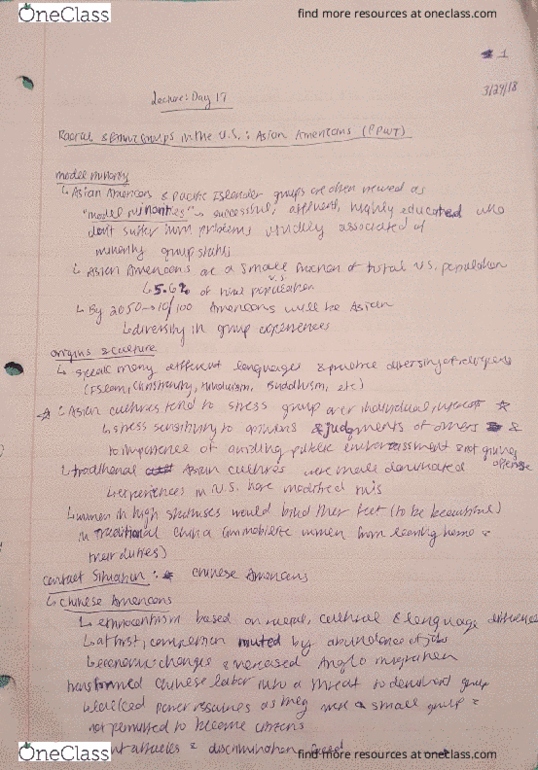 OneClass
find more resources at oneclass.com
1
3/29/18
Lecture: Day 17
Racial & Ethnic Groups in the U.S.: Asian Americans (PPWT)
model minority
↳ Asian Americans & Pacific Islander groups are often viewed as
"model minorities" → successful, affluent, highly educated who
don't suffer from problems usually associated w/
minority group status
↳ Asian Americans are a small fraction of total U.S. population
↳ 5.6% of total U.S. population
↳ By 2050 → 10/100 Americans will be Asian
↳ diversity in group experiences
origins & culture
↳ speak many different languages & practice diversity of religions
(Islam, Christianity, Hinduism, Buddhism, etc)
☆ ↳ Asian cultures tend to stress group over individual interests ☆
↳ stress sensitivity to opinions & judgments of others &
to importance of avoiding public embarrassment & not giving
offense
↳ traditional Asian cultures were male dominated
↳ experiences in U.S. have modified this
↳ women in high statuses would bind their feet (to be beautiful)
in traditional China (immobilize women from leaving home &
their duties)
contact situation: Chinese Americans
↳ Chinese Americans
↳ ethnocentrism based on racial, cultural & language differences
↳ at first, competition muted by abundance of jobs
↳ economic changes & increased Anglo migration
transformed Chinese labor into a threat to dominant group
↳ lacked power resources as they were a small group &
not permitted to become citizens
attacks & discrimination
OneClass
find more resources at oneclass.com